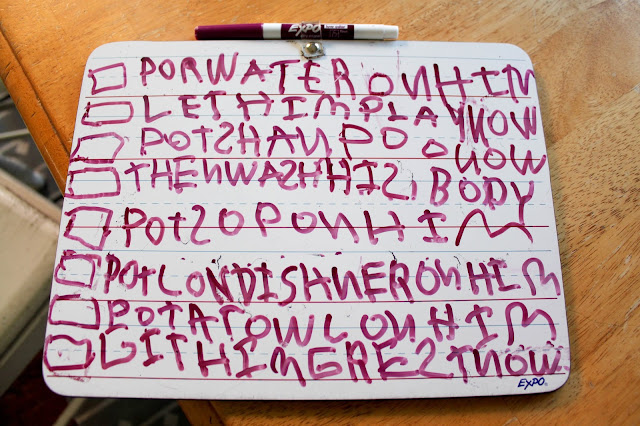 EXPO
POR WATER ON HIM
LET HIM PLAY NOW
POT SHANPOO NOW
THEN WASH HIS BODY
POT SOP ON HIM
POT CONDISHNER ON HIM
POT A TOWL ON HIM
GIT HIM GREST NOW
EXPO